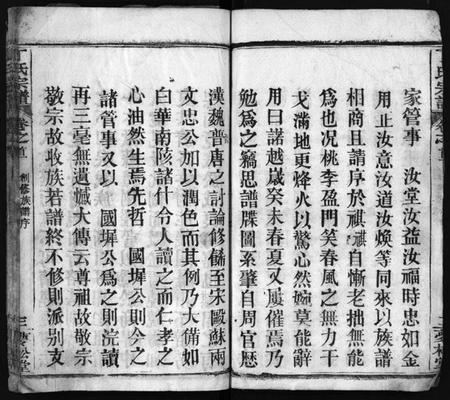 家管事 汝堂汝益汝福時忠如金
用止汝意汝道汝煥等同來以族譜
相商且請序於祺祺自慚老拙無能
為也况桃李盈門笑春風之無力干
戈滿地更烽火以驚心然婉莫能辭
用曰諾越歲癸未春夏又屢催焉乃
勉為之竊思譜牒圖系肇自周官歷
漢魏晉唐之討論修儲至宋歐蘇兩
文忠公加以潤色而其例乃大備如
白華南陔諸什令人讀之而仁孝之
心油然生焉先哲 國墀公則今之
諸管事又以 國墀公為之則浣讀
再三毫無遺憾大傳云尊祖故敬宗
敬宗故收族若譜終不修則派别支
丁氏宗譜
卷之首
創修族譜序
三